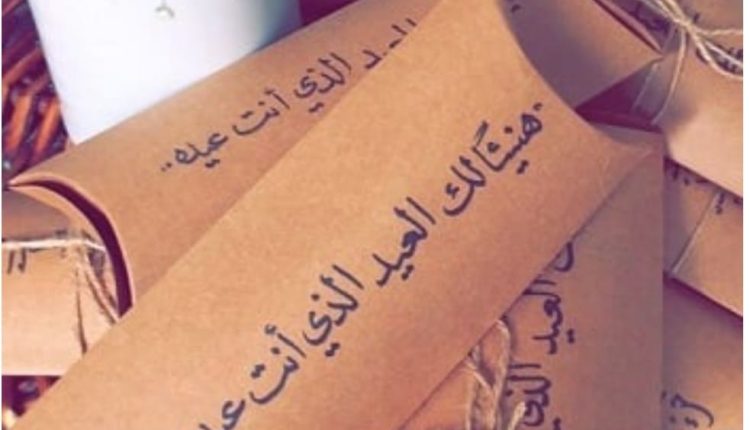 الذي أنت عيده ..
"هنيئًا لك العيد الذي أنت
العيد الذي